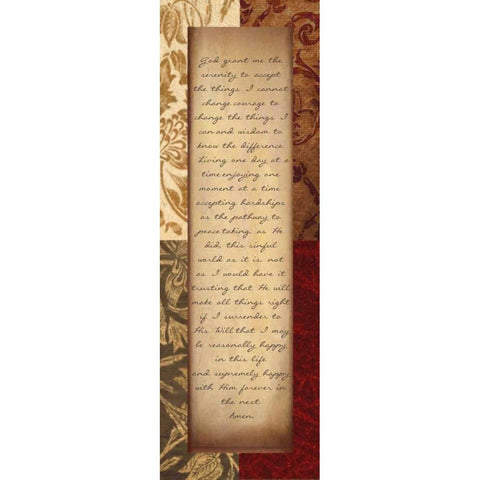 God grant me the
serenity to accept
the things I cannot
change courage to
change the things I
can and wisdom to
know the difference.
Living one day at a
time enjoying one
moment at a time
accepting hardships
as the pathway to
peace taking, as He
did, this sinful
world as it is, not
as I would have it
trusting that He will
make all things right
if I surrender to
His Will that I may
be reasonally happy
in this life
and supremely happy
with Him forever in
the next.
Amen.